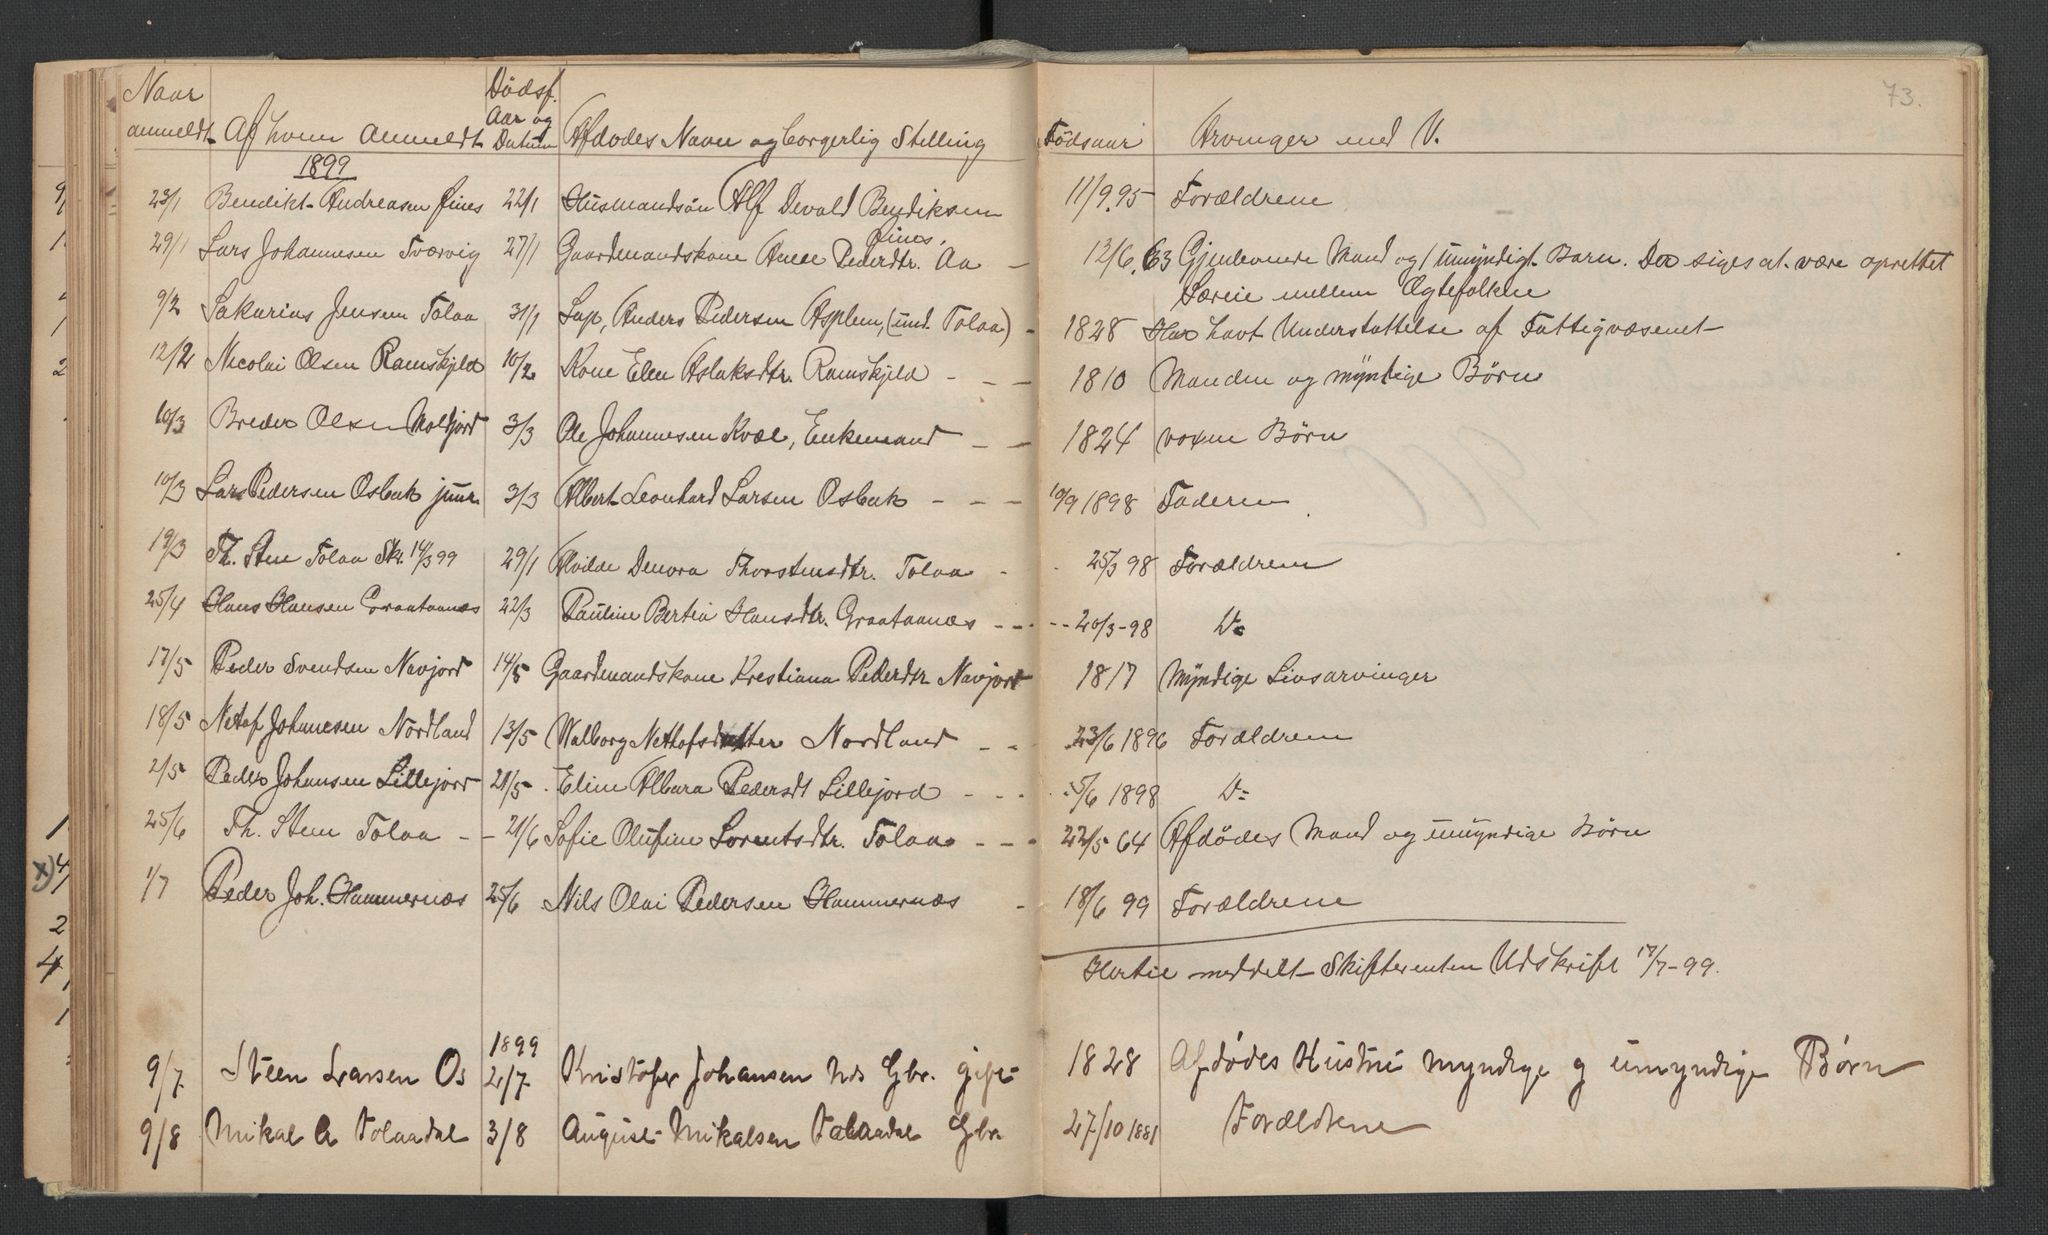 73.
Naar anmeldt Af hvem anmeldt Dødsf. Aar og Datum Afdødes Navn og borgerlig Stilling Fødsaar Arvinger med V.
1899
23/1 Bendikt Andreasen Fines 22/1 Husmandsøn Alf Devold Bendiksen Fines, 11/9.95 Forældrene
29/1 Lars Johannesen Tværvig 27/1 Gaardmandskone Anne Pederdtr. Aa – 12/6.63 Gjenlevende Mand og 1 umyndigt Barn. Der siges at være oprettet
Særeie mellem Ægtefolkene
9/2 Sakarias Jensen Tolaa 31/1 Lap, Anders Pedersen Asplem, (und. Tolaa) – 1828 Har havt Understøttelse af Fattigvæsenet
12/2 Nicolai Olsen Ramskjeld 10/2 Kone Elen Aslaksdtr. Ramskjeld – – – 1810 Manden og myndige Børn
10/3 Breder Olsen Moldjord 3/3 Ole Johannesen Kvæl, Enkemand – – 1824 voxne Børn
10/3 Lars Pedersen Osbak junr. 3/3 Albert Leonhard Larsen Osbak – – – 10/9 1898 Faderen
19/3 Th. Sten Tolaa Skr. 14/3 99 29/1 Alvilde Denora Thorstensdtr. Tolaa - 25/3 98 Forældrene
25/4 Hans Hansen Graatanæs 22/3 Pauline Bertea Hansdtr. Graatanæs – – – 20/3-98 Do
17/5 Peder Svendsen Navjord 14/5 Gaardmandskone Krestiana Pederdtr Navjord 1817 Myndige Livsarvinger
18/5 Netof Johanesen Nordland 13/5 Walborg Nethofsdatter Nordland – – 23/6 1896 Forældrene
2/5 Peder Johansen Lillejord 21/5 Eline Albara Pedersdt Lillejord – – – 5/6 1898 Do
25/6 Th. Sten Tolaa – – 21/6 Sofie Olufine Lorentsdtr. Tolaa – – – 22/5 64 Afdødes Mand og umyndige Børn
1/7 Peder Joh. Hammernæs 25/6 Nils Olai Pedersen Hammernæs – 18/6 99 Forældrene
Hertil meddelt Skifteretten Udskrift 17/7-99.
1899
9/7 Steen Larsen Os 2/7 Kristofer Johansen Gbr. gift 1828 Afdødes Hustru myndige g umyndige Børn
9/8 Mikal A Tolaadal 3/8 August Mikalsen Tolaadal Gbr 27/10 1881 Forældrene